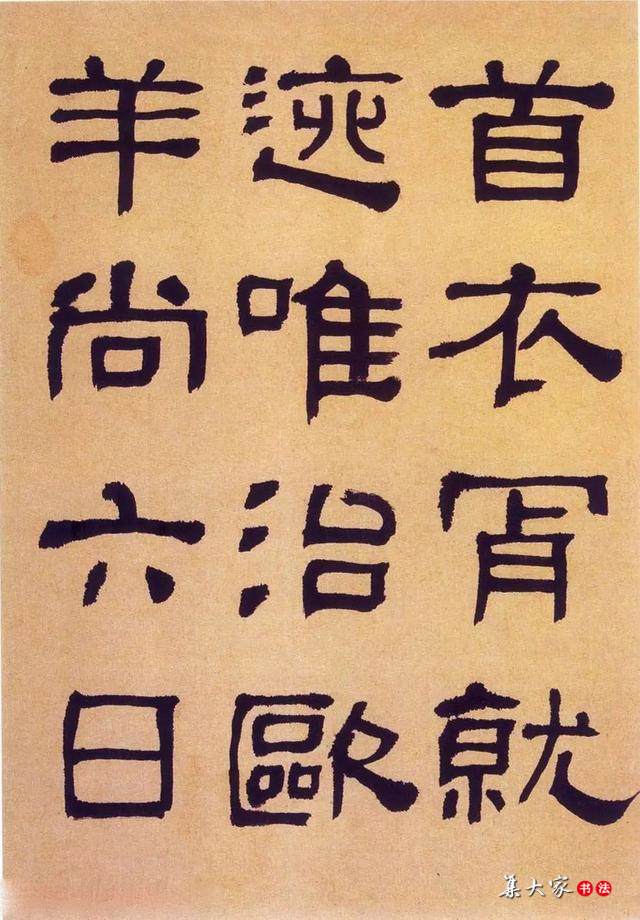 首衣就
迹唯治歐
羊尚六日
集大家书法